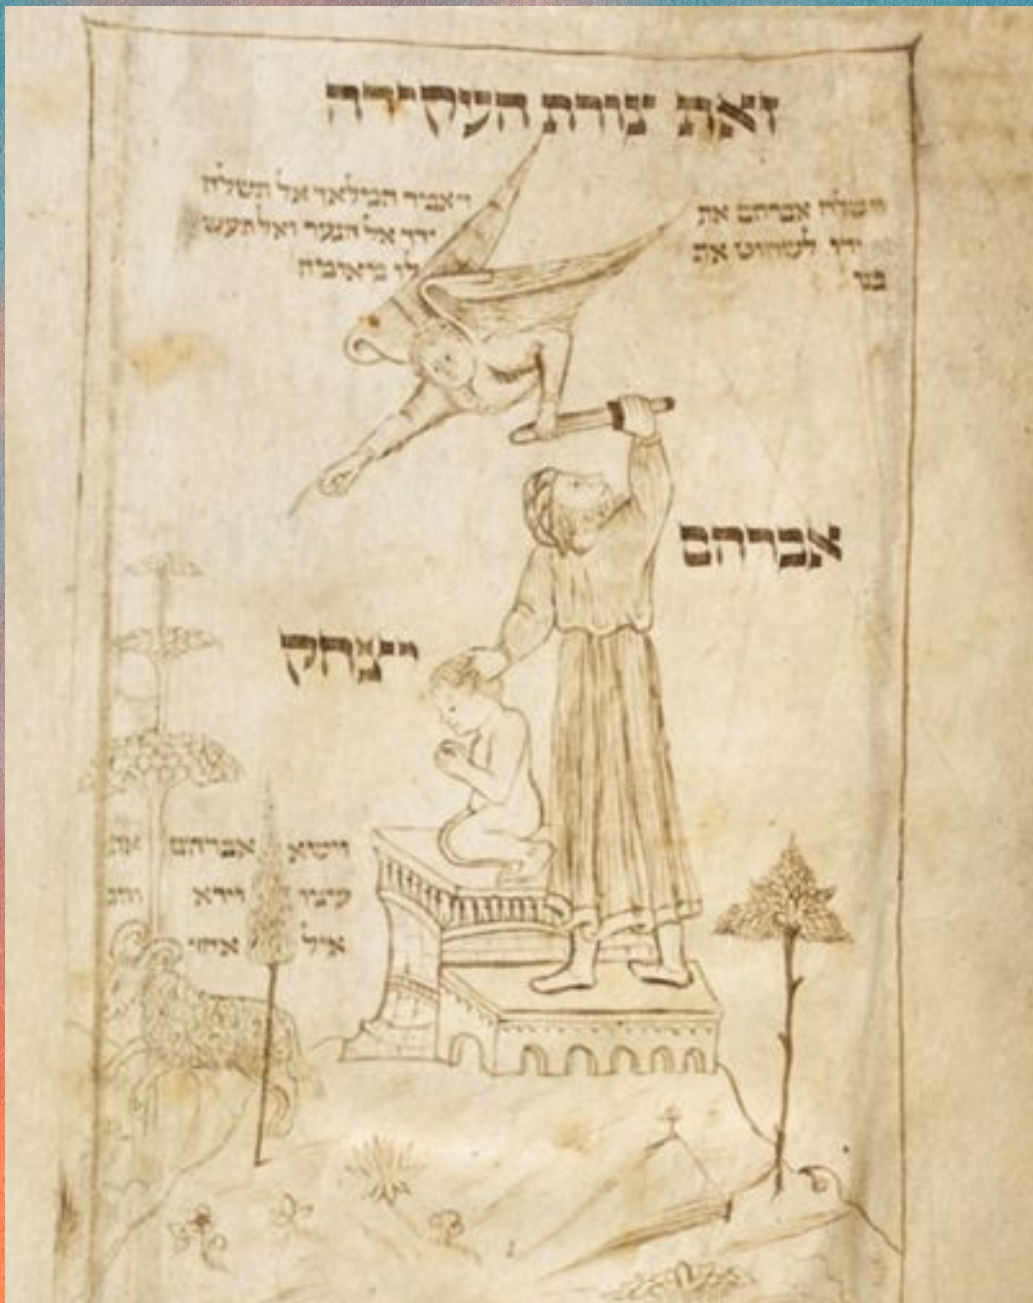 זאת צורת העקידה
וישלח אברהם את
ידו לשחוט את
בנו
ויאמר המלאך אל תשלח
ידך אל הנער ואל תעש
לו מאומה
אברהם
יצחק
וישא אברהם את
עיניו וירא והנ
איל אחר